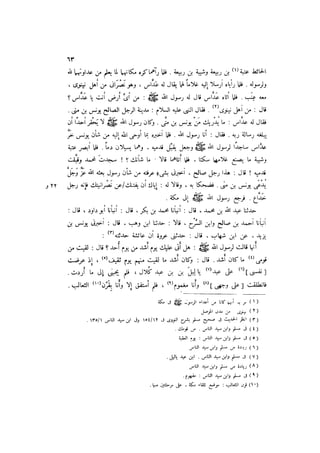 ٦٣
الحائط عتبة(١) بن ربيعة وشيبة بن ربيعة . فلما رآهما كره مكانهما لما يعلم من عداوتهما لله
ولرسوله . فلما رأياه أرسلا إليه غلاماً لهما يقال له عدَّاس ، وهو نصرانى من أهل نينوى ،
معه عنب . فلما أتاه عدَّاس قال له رسول الله ﷺ : من أىّ أرض أنت يا عدَّاس ؟
قال : من أهل نينوى(٢) . فقال النبى عليه السلام : مدينة الرجل الصالح يونس بن متى .
فقال له عدَّاس : ما يُدْريك مَنْ يونس بن متَّى . وكان رسول الله ﷺ لا يُحقّر أحداً أن
يبلغه رسالة ربه . فقال : أنا رسول الله . فلما أخبره بما أوحى الله إليه من شأن يونس خرَّ
عدَّاس ساجداً لرسول الله ﷺ وجعل يقبّل قدميه ، وهما يسيلان دماً . فلما أبصر عتبة
وشيبة ما يصنع غلامهما سكتا . فلما أتاهما قالا : ما شأنك ؟ ! سجدتَ لمحمد وقبّلت
قدميه ! قال : هذا رجل صالح ، أخبرنى بشىء عرفته من شأن رسول بعثه الله عزَّ وجلَّ
يُدْعَى يونس بن متى . فضحكا به ، وقالا له : إياك أن يفتنك/عن نصرانيتك فإنه رجل ٢٢ و
خدَّاع . فرجع رسول الله ﷺ إلى مكة .
حدثنا عبد الله بن محمد ، قال : أنبأنا محمد بن بكر ، قال : أنبأنا أبو داود ، قال :
أنبأنا أحمد بن صالح وابن السَّرْح ، قالا : حدثنا ابن وهب ، قال : أخبرنى يونس بن
يزيد ، عن ابن شهاب ، قال : حدثنى عروة أن عائشة حدثته(٣) :
أنها قالت لرسول الله ﷺ : هل أتى عليك يوم أشد من يوم أُحد ؟ قال : لقيت من
قومى(٤) ما كان أشد . قال : وكان أشد ما لقيت منهم يوم ثقيف(٥) ، إذ عرضت
[ نفسى ](٦) على عبد(٧) ياليل بن عبد كُلَال ، فلم يجبنى إلى ما أردت .
فانطلقت [ على وجهى ](٨) وأنا مغموم(٩) ، فلم أستفق إلا وأنا بقرن(١٠) الثعالب .
(٢) نينوى : من مدن الموصل .
(٣) انظر الحديث فى صحيح مسلم بشرح النووى ١٢/ ١٥٤ وفى ابن سيد الناس ١ /١٣٥ .
(٤) فى مسلم وابن سيد الناس : من قومك .
(٥) فى مسلم وابن سيد الناس : يوم العقبة
(٦) زيادة من مسلم وابن سيد الناس .
(٧) فى مسلم وابن سيد الناس : ابن عبد ياليل .
(٨) زيادة من مسلم وابن سيد الناس .
(٩) فى مسلم وابن سيد الناس : مهموم .
(١٠) قرن الثعالب : موضع تلقاء مكة ، على مرحلتين منها .